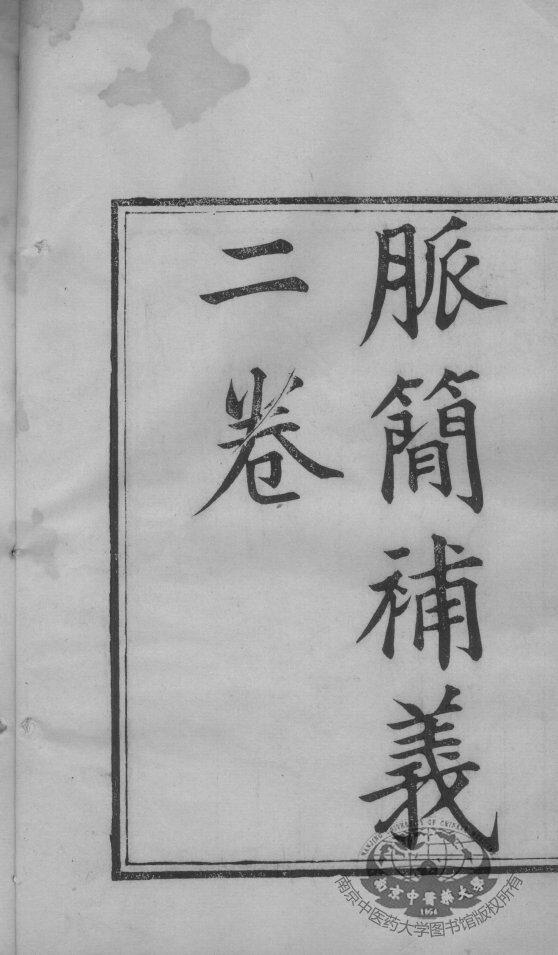 脈簡補義
二卷
NANJING UNIVERSITY OF CHINESE
南京中醫藥大學
1954
南京中医药大学图书馆版权所有